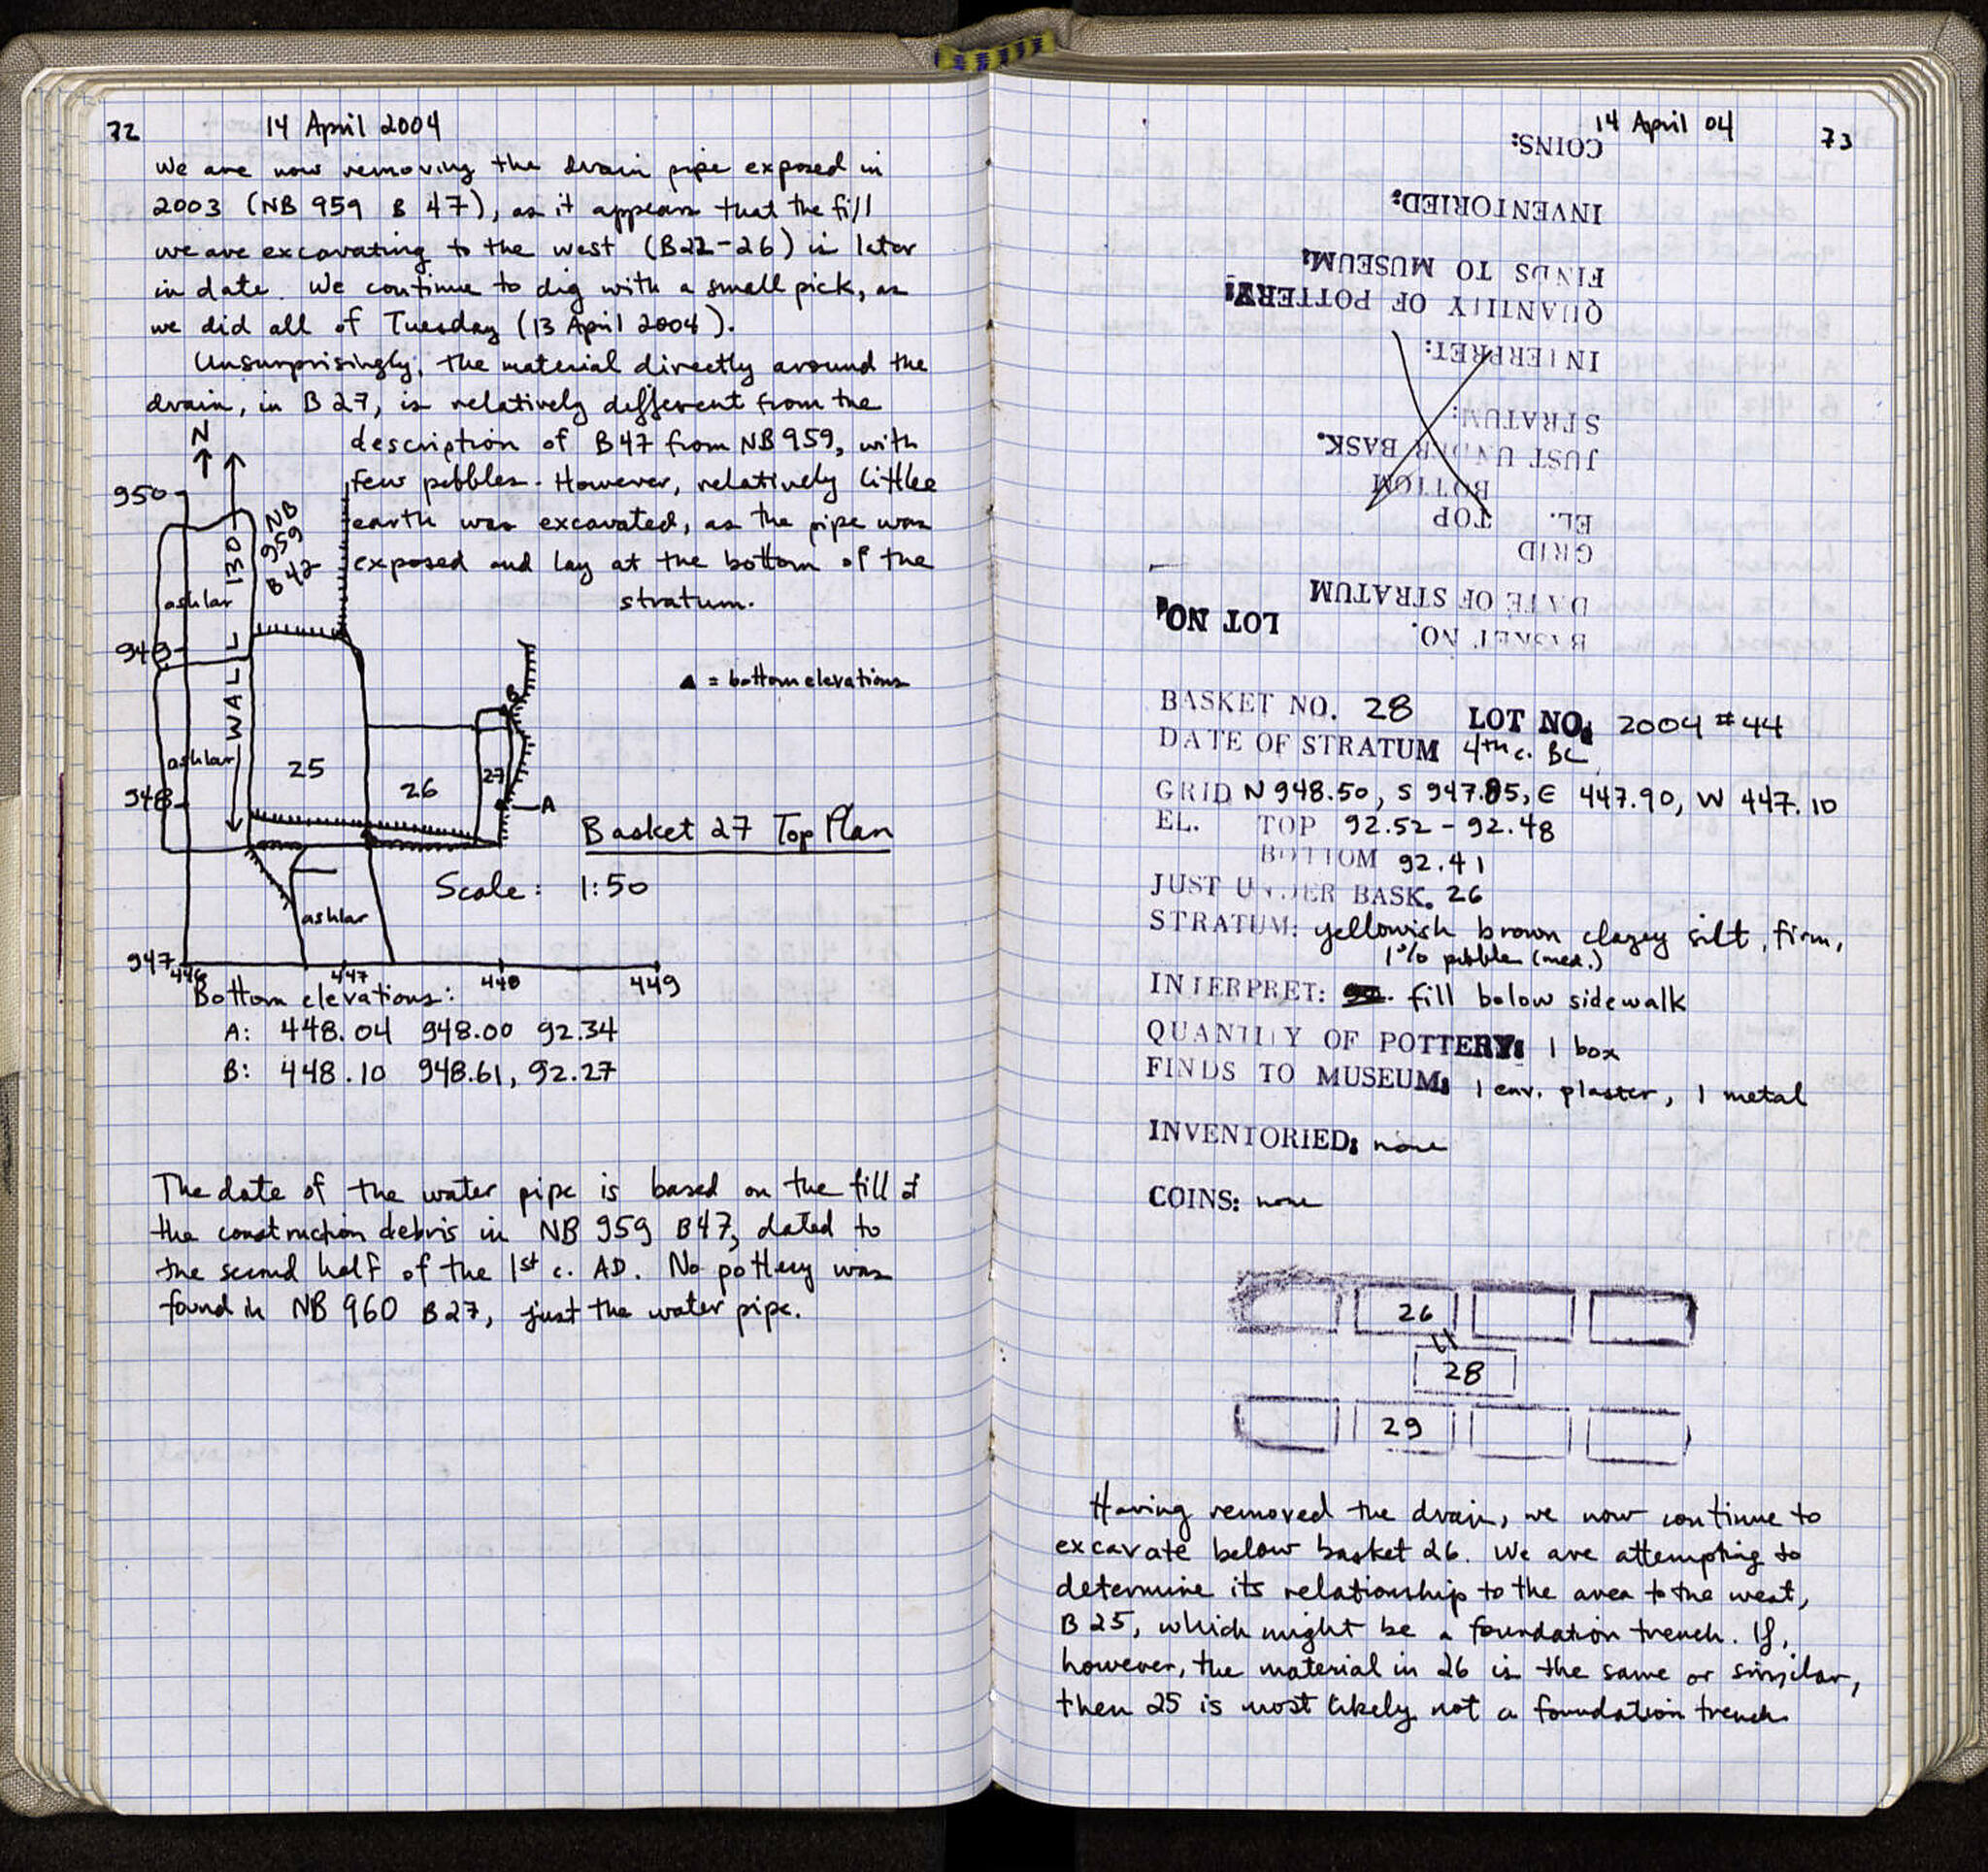 72
14 April 2004
We are now removing the drain pipe exposed in
2003 (NB 959 B 47), as it appears that the fill
we are excavating to the west (B22-26) is later
in date. We continue to dig with a small pick, as
we did all of Tuesday (13 April 2004).
Unsurprisingly, the material directly around the
drain, in B27, is relatively different from the
description of B47 from NB959, with
few pebbles. However, relatively little
earth was excavated, as the pipe was
exposed and lay at the bottom of the
stratum.
N
950
949
948
947
446
447
448
449
NB
959
B 47
WALL 130
ashlar
ashlar
ashlar
25
26
27
B
A
▲ = bottom elevations
Basket 27 Top Plan
Scale: 1:50
Bottom elevations:
A: 448.04 948.00 92.34
B: 448.10 948.61, 92.27
The date of the water pipe is based on the fill of
the construction debris in NB 959 B47, dated to
the second half of the 1st c. AD. No pottery was
found in NB 960 B27, just the water pipe.
14 April 04
73
COINS:
INVENTORIED:
FINDS TO MUSEUM:
QUANTITY OF POTTERY:
INTERPRET:
STRATUM:
JUST UNDER BASK.
BOTTOM
EL. TOP
GRID
DATE OF STRATUM
BASKET NO. LOT NO.
BASKET NO. 28 LOT NO. 2004 #44
DATE OF STRATUM 4th c. BC
GRID N 948.50, S 947.85, E 447.90, W 447.10
EL. TOP 92.52 - 92.48
BOTTOM 92.41
JUST UNDER BASK. 26
STRATUM: yellowish brown clayey silt, firm,
1% pebbles (med.)
INTERPRET: fill below sidewalk
QUANTITY OF POTTERY: 1 box
FINDS TO MUSEUM: 1 env. plaster, 1 metal
INVENTORIED: none
COINS: none
26
28
29
Having removed the drain, we now continue to
excavate below basket 26. We are attempting to
determine its relationship to the area to the west,
B 25, which might be a foundation trench. If,
however, the material in 26 is the same or similar,
then 25 is most likely not a foundation trench.